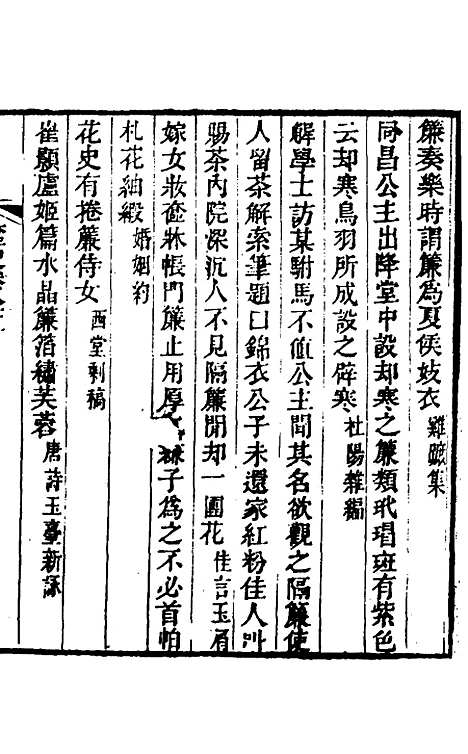 簾奏樂時謂簾爲夏侯妓衣 難蹠集
同昌公主出降堂中設却寒之簾類玳瑁斑有紫色
云却寒鳥羽所成設之辟寒 杜陽雜編
解學士訪某駙馬不値公主聞其名欲觀之隔簾使
人留茶解索筆題曰錦衣公子未還家紅粉佳人叫
賜茶內院深沉人不見隔簾閒却一團花 佳言玉屑
嫁女妝奩牀帳門簾止用厚 子爲之不必首帕
札花紬緞 婚姻約
花史有捲簾侍女 西堂剩稿
崔顥盧姬篇水晶簾箔繡芙蓉 唐詩玉臺新詠